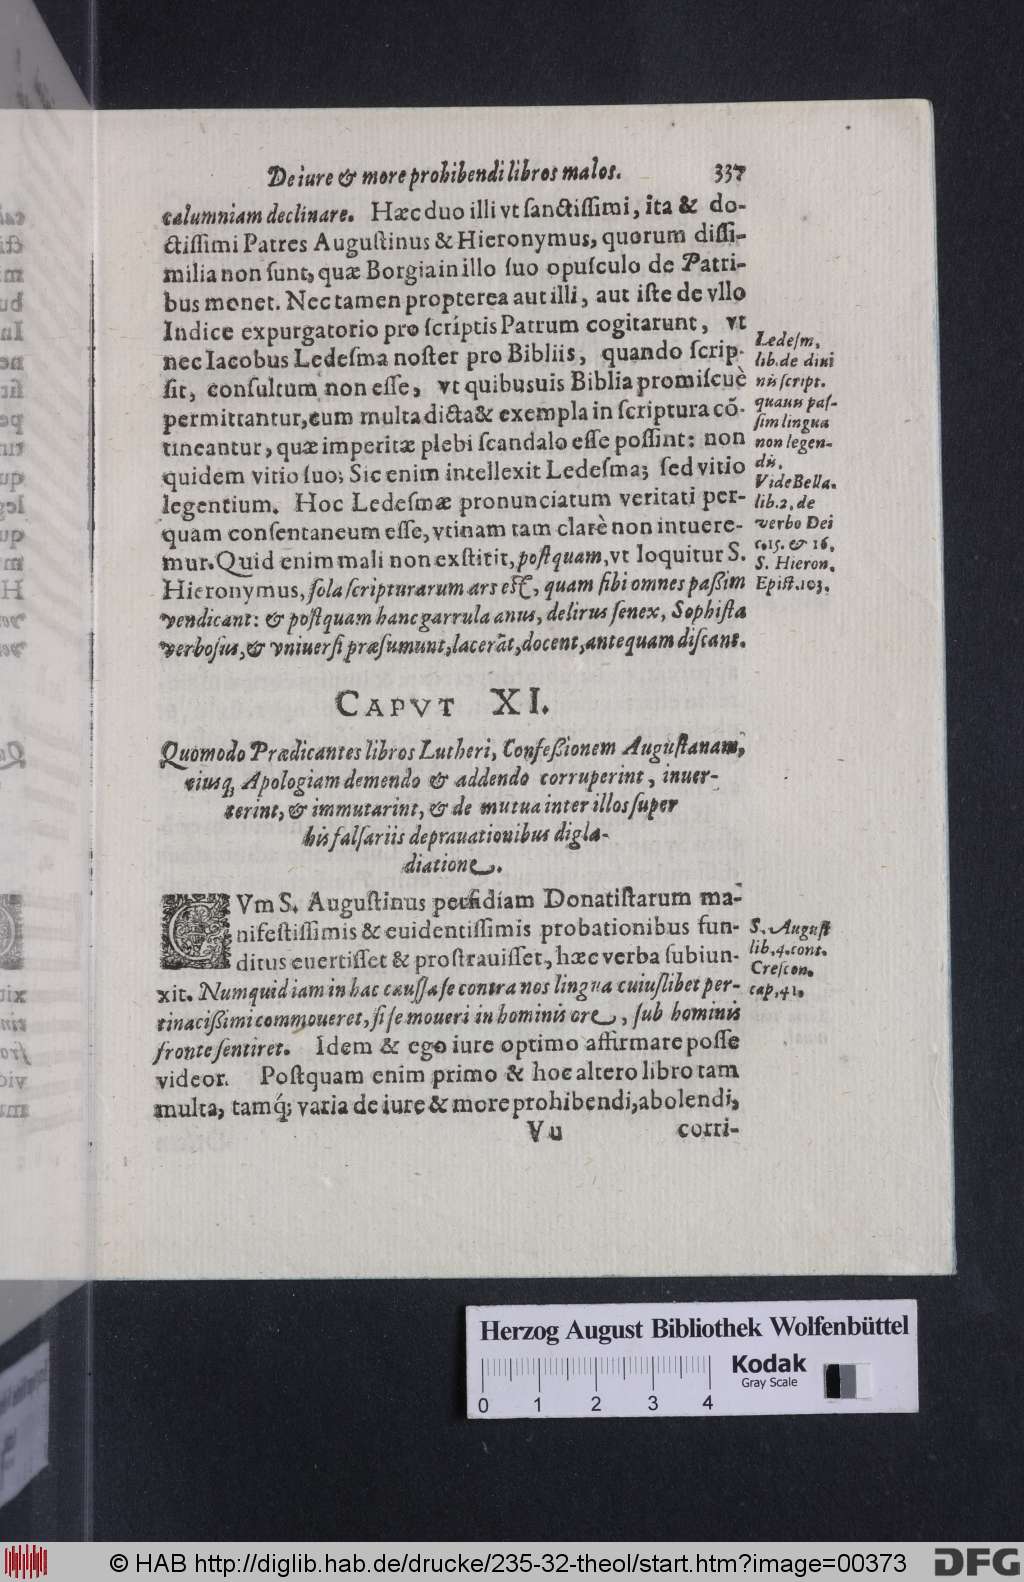 De iure & more prohibendi libros malos. 337
calumniam declinare. Hæc duo illi vt ſanctiſſimi, ita & do-
ctiſſimi Patres Auguſtinus & Hieronymus, quorum diſſi-
milia non ſunt, quæ Borgia in illo ſuo opuſculo de Patri-
bus monet. Nec tamen propterea aut illi, aut iſte de vllo
Indice expurgatorio pro ſcriptis Patrum cogitarunt, vt
nec Iacobus Ledeſma noſter pro Bibliis, quando ſcrip-
ſit, conſultum non eſſe, vt quibusuis Biblia promiſcuè
permittantur, cum multa dicta & exempla in ſcriptura cõ-
tineantur, quæ imperitæ plebi ſcandalo eſſe poſſint: non
quidem vitio ſuo; Sic enim intellexit Ledeſma; ſed vitio
legentium. Hoc Ledeſmæ pronunciatum veritati per-
quam conſentaneum eſſe, vtinam tam clarè non intuere-
mur. Quid enim mali non exſtitit, poſtquam, vt loquitur S.
Hieronymus, ſola ſcripturarum ars eſt, quam ſibi omnes paßim
vendicant: & poſtquam hanc garrula anus, delirus ſenex, Sophiſta
verboſus, & vniuerſi præſumunt, lacerãt, docent, antequam diſcant.
Ledeſm.
lib. de diui
nis ſcript.
quauis paſ-
ſim lingua
non legen-
dis.
Vide Bella.
lib. 2. de
verbo Dei
c. 15. & 16.
S. Hieron.
Epiſt. 103.
CAPVT XI.
Quomodo Prædicantes libros Lutheri, Confeßionem Auguſtanam,
eiusq, Apologiam demendo & addendo corruperint, inuer-
terint, & immutarint, & de mutua inter illos ſuper
his falſariis deprauationibus digla-
diatione.
CVm S. Auguſtinus perfidiam Donatiſtarum ma-
nifeſtiſſimis & euidentiſſimis probationibus fun-
ditus euertiſſet & proſtrauiſſet, hæc verba ſubiun-
xit. Numquid iam in hac cauſſa ſe contra nos lingua cuiuſlibet per-
tinacißimi commoueret, ſi ſe moueri in hominis ore, ſub hominis
fronte ſentiret. Idem & ego iure optimo affirmare poſſe
videor. Poſtquam enim primo & hoc altero libro tam
multa, tamq́; varia de iure & more prohibendi, abolendi,
S. Auguſt
lib. 4. cont.
Creſcon.
cap, 41.
Vu corri-
Herzog August Bibliothek Wolfenbüttel
Kodak
Gray Scale
0 1 2 3 4
© HAB http://diglib.hab.de/drucke/235-32-theol/start.htm?image=00373
DFG